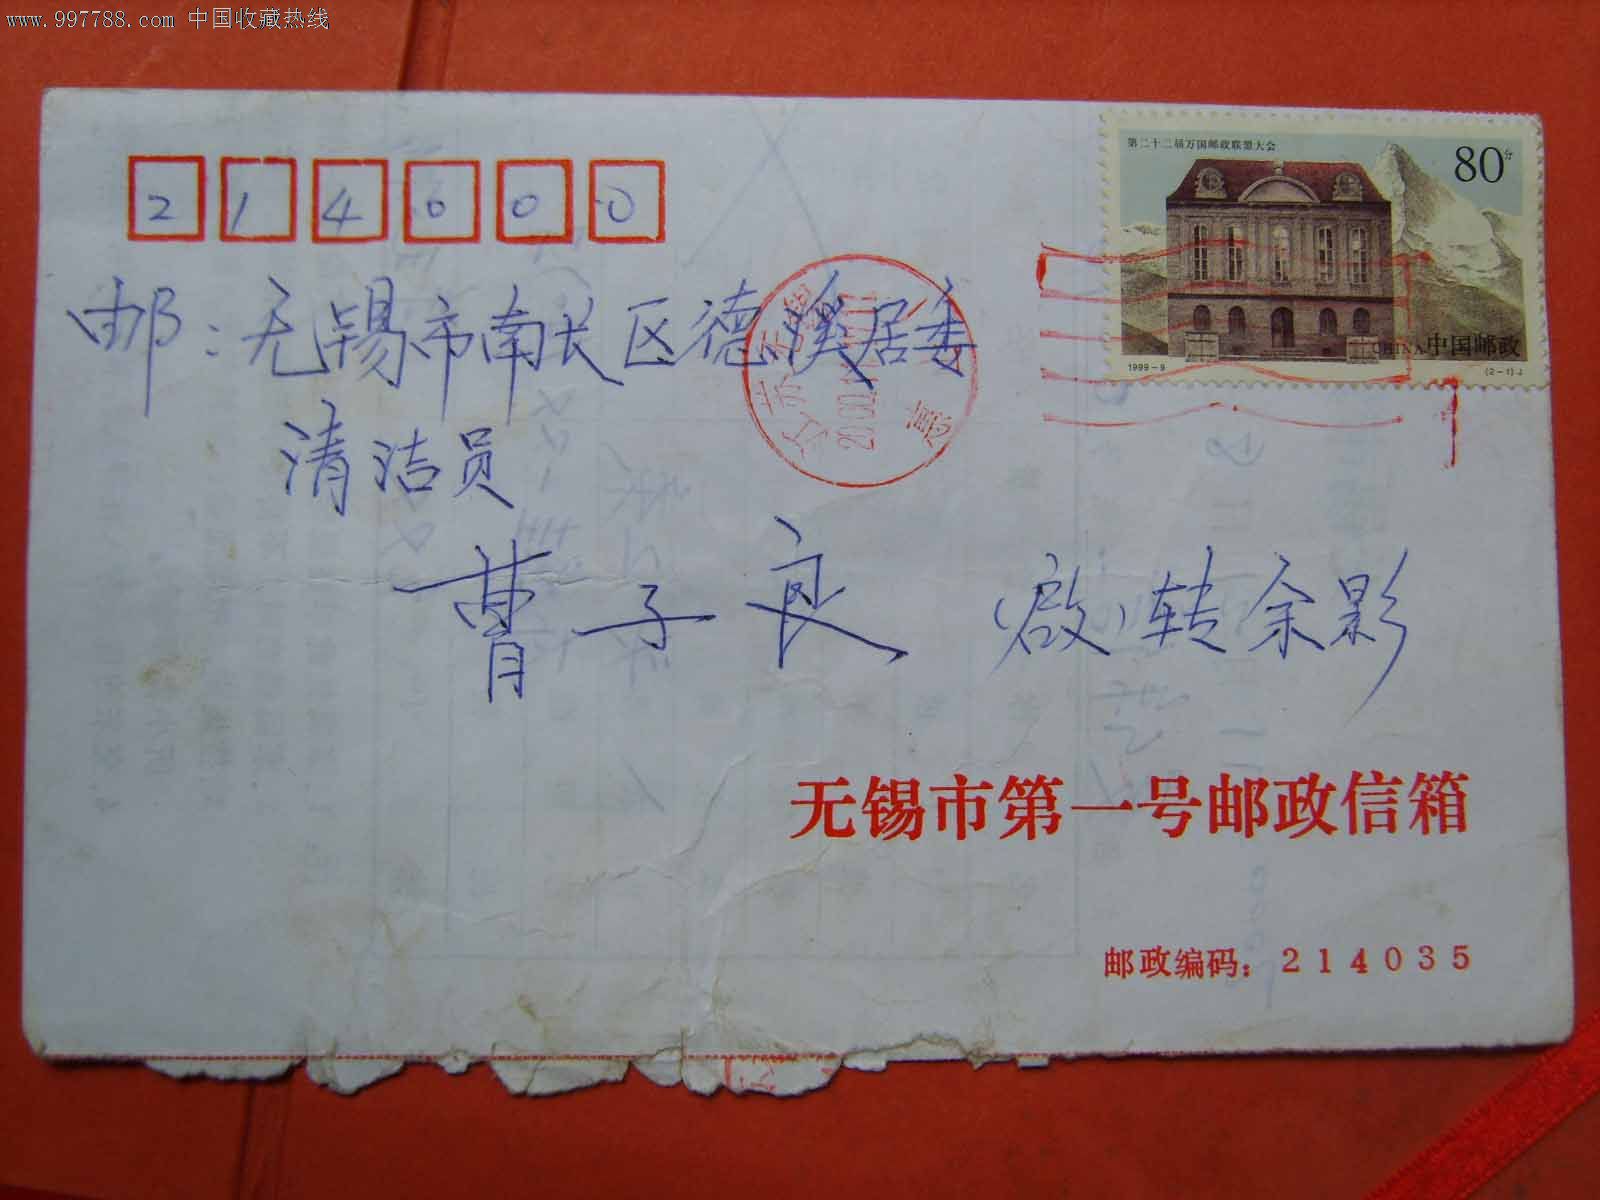 www.997788.com 中国收藏热线
214000
第二十二届万国邮政联盟大会
80分
CHINA中国邮政
1999-9
(2-1)J
邮:无锡市南长区德溪居委
清洁员
曹子良 (启)转余影
江苏无锡
无锡市第一号邮政信箱
邮政编码:214035